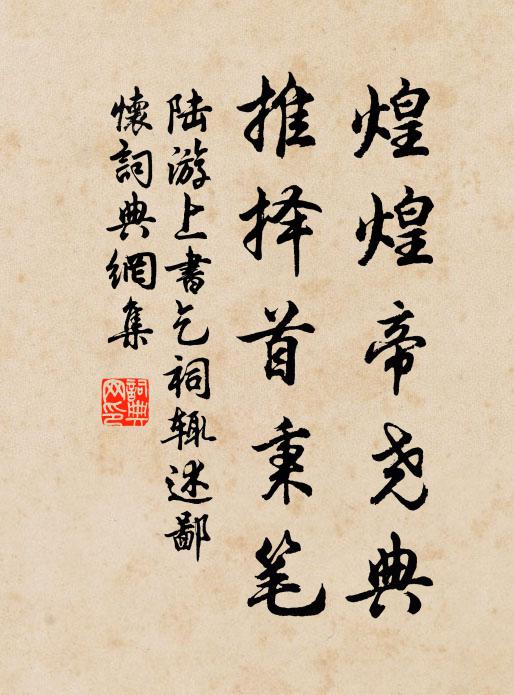 煌煌帝尧典
推择首秉笔
陆游上书乞祠辄述鄙
懷詞典網集
詞典网印